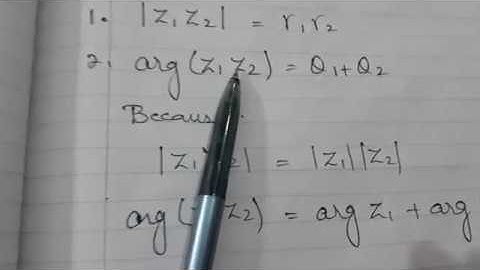 1. |z₁z₂| = r₁r₂
2. arg(z₁z₂) = θ₁+θ₂
Becaus
|z₁z₂| = |z₁||z₂|
arg(z₂) = arg z₁ + arg